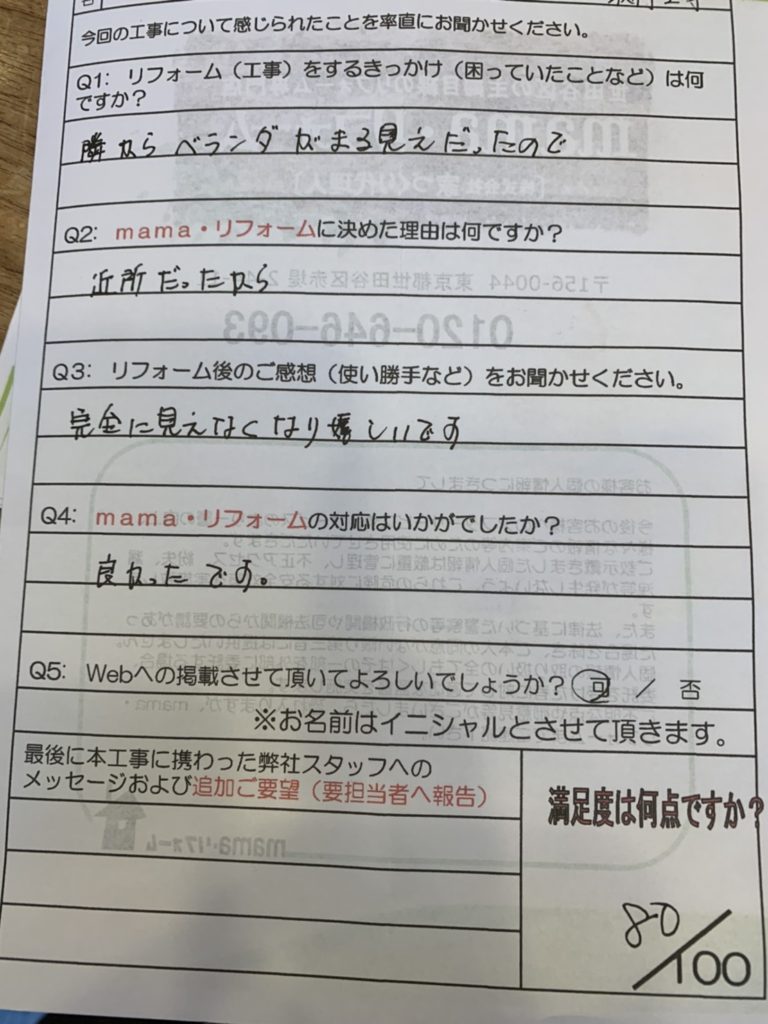 今回の工事について感じられたことを率直にお聞かせください。
Q1: リフォーム（工事）をするきっかけ（困っていたことなど）は何
ですか？
隣からベランダがまる見えだったので
Q2: mama・リフォームに決めた理由は何ですか？
近所だったから
Q3: リフォーム後のご感想（使い勝手など）をお聞かせください。
完全に見えなくなり嬉しいです
Q4: mama・リフォームの対応はいかがでしたか？
良かったです。
Q5: Webへの掲載させて頂いてよろしいでしょうか？可 / 否
※お名前はイニシャルとさせて頂きます。
最後に本工事に携わった弊社スタッフへの
メッセージおよび追加ご要望（要担当者へ報告）
満足度は何点ですか？
80/100